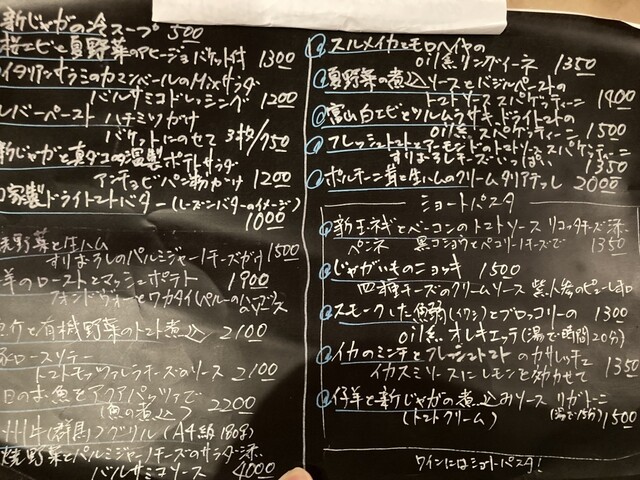 新じゃがの冷スープ 500
桜エビと夏野菜のアヒージョ バケット付 1300
イタリアンサラミのカマンベールのMixサラダ
バルサミコドレッシング 1200
レバーペースト ハチミツがけ
バケットにのせて 3枚/750
新じゃがと真ダコの燻製ポテトサラダ
アンチョビパン粉がけ 1200
自家製ドライトマトバター(レーズンバターのイメージ)
1000
焼野菜と生ハム
すりおろしのパルミジャーノチーズがけ 1500
羊のローストとマッシュポテト 1900
フォンドヴォーとワカタイペルーの
と有機野菜のトマト煮込 2100
豚ロースソテー
トマトモッツァレラチーズのソース 2100
日のお魚とアクアパッツァで
(魚の煮込) 2200
州牛(群馬)グリル(A4級180g)
焼野菜とパルミジャーノチーズのサラダ添
バルサミコソース 4000
スルメイカとモロヘイヤの
oil系リングイーネ 1350
夏野菜の煮込ソースとバジルペーストの
トマトソース スパゲッティーニ 1400
富山白エビとツルムラサキ、ドライトマトの
oil系スパゲッティーニ 1500
フレッシュトマトとアーモンドのトマトソース スパゲッティーニ
すりおろしチーズいっぱい 1350
ポルチーニ茸と生ハムのクリームタリアテッレ 2000
ショートパスタ
新玉ネギとベーコンのトマトソース リコッタチーズ添
ペンネ 黒コショウとペコリーノチーズで 1350
じゃがいものニョッキ 1500
四種チーズのクリームソース 紫人参のピューレ和
スモークした鰯(イワシ)とブロッコリーの 1300
oil系 オレキエッテ(湯で時間20分)
イカのミンチとフレッシュトマトのカサレッチェ
イカスミソースにレモンを効かせて 1350
仔羊と新じゃがの煮込みソース リガトーニ
(トマトクリーム) (湯で15分) 1500
ワインにはショートパスタ!